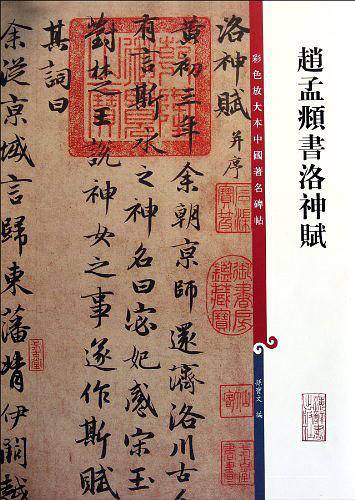 趙孟頫書洛神賦
彩色放大本中國著名碑帖
孫寶文 編
洛神賦 并序
黃初三年余朝京師還濟洛川古
有言斯水之神名曰宓妃感宋玉
對楚王說神女之事遂作斯賦
其詞曰
余從京域言歸東藩背伊闕越